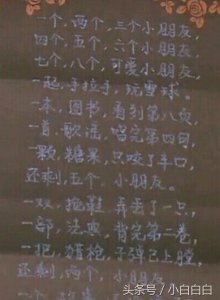 一个,两个,三个小朋友
四个,五个,六个小朋友,
七个,八个,可爱小朋友,
一起,手拉手,玩雪球。
一本,图书,看到第八页,
一首,歌谣,唱完第四句,
一颗,糖果,只咬了半口,
还剩,五个,小朋友。
一双,拖鞋,弄丢了一只,
一部,法典,背完第二卷,
一把,猎枪,子弹已上膛,
还剩,两个,小朋友
头条号/小白白白